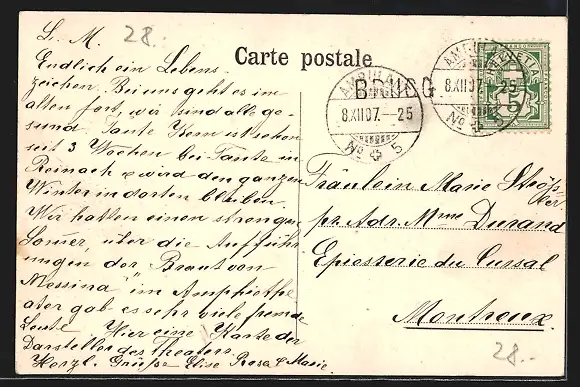 L. M.
28.-
Endlich ein Lebens-
zeichen. Bei uns geht es im
alten fort, wir sind alle ge-
sund. Tante Kern ist schon
seit 3 Wochen bei Tante in
Reinach & wird den ganzen
Winter in dorten bleiben.
Wir hatten einen strengen
Somer, über die Aufführ
ungen der Braut von
Messina im Amphiethe
ater gab es sehr viele fremde
Leute. Hier eine Karte der
Darsteller des Theaters.
Herzl. Grüsse Elise Rosa & Marie.
Carte postale
BRIEG
AMBULANT
8.XII.07.–25
No 5
AMBULANT
8.XII.07.–25
No
HELVETIA
5
Fräulein Marie
pr. Adr. Mme Durand
Epicsserie du Cursal
Montreux.
28.-